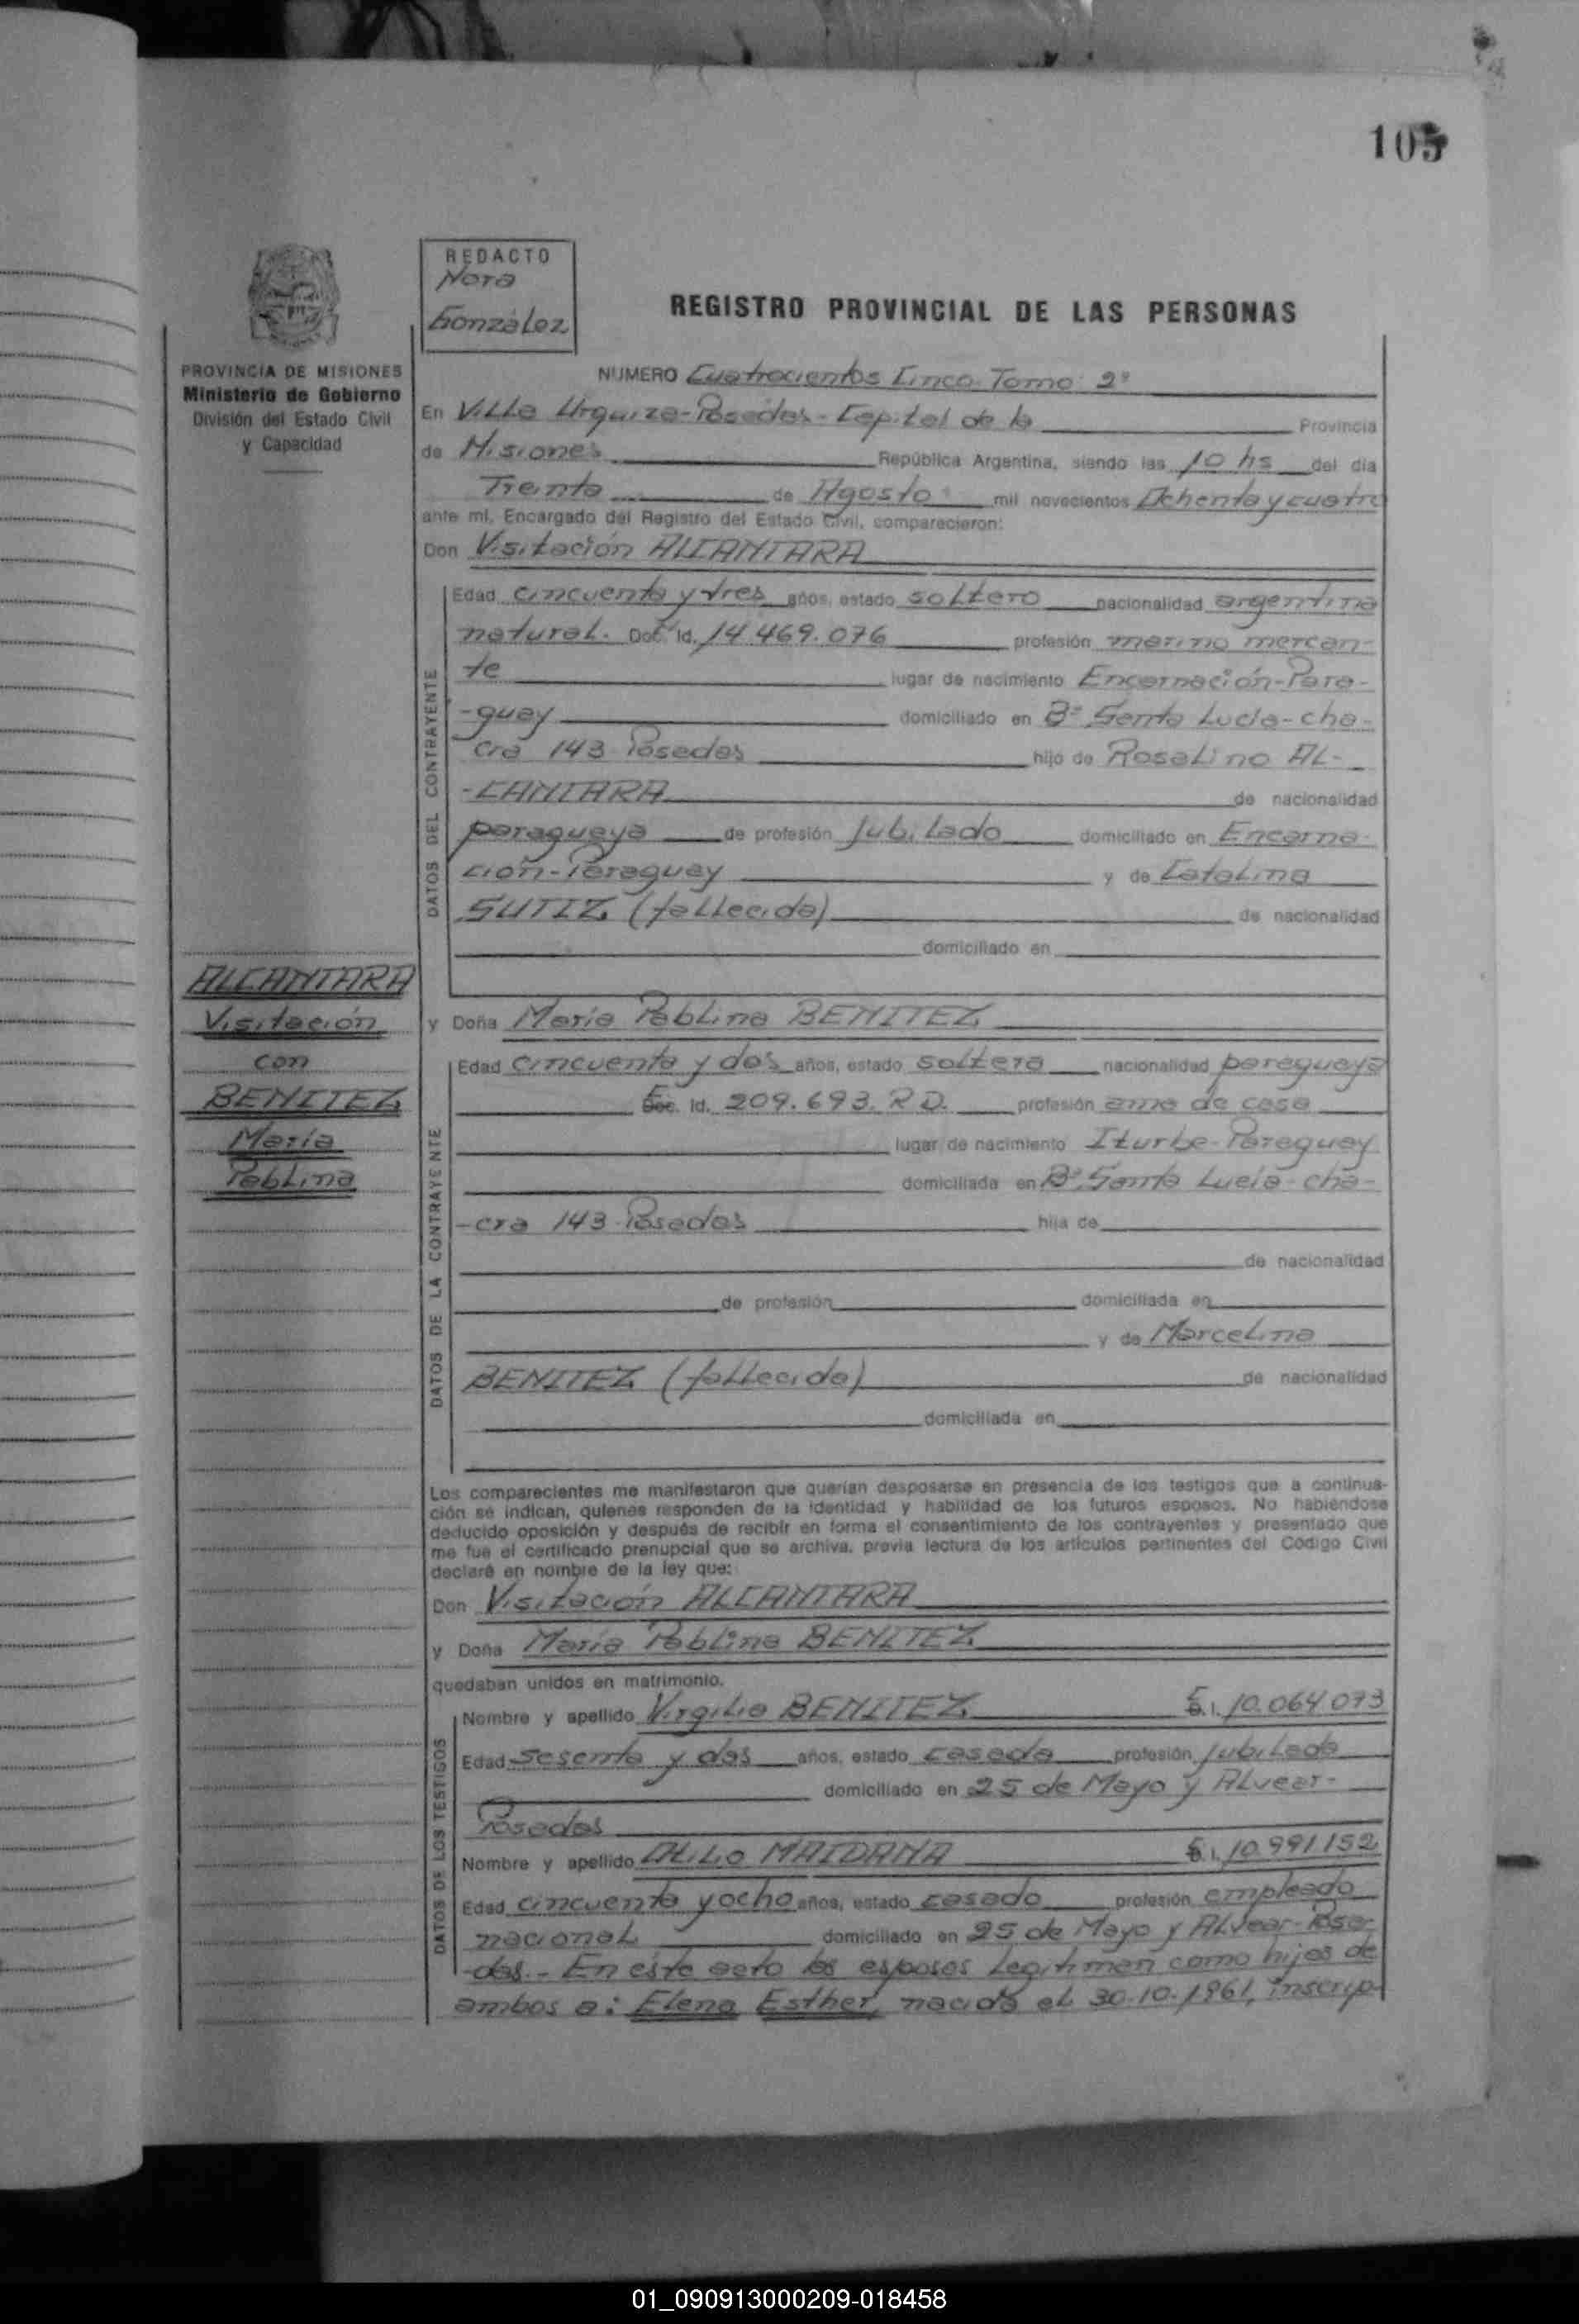 105
REDACTO
Nora
González
REGISTRO PROVINCIAL DE LAS PERSONAS
PROVINCIA DE MISIONES
Ministerio de Gobierno
División del Estado Civil
y Capacidad
NUMERO Cuatrocientos Cinco Tomo: 2º
En Villa Urquiza-Posadas-Capital de la Provincia
de Misiones República Argentina, siendo las 10 hs del día
Treinta de Agosto mil novecientos Ochenta y cuatro
ante mi, Encargado del Registro del Estado Civil, comparecieron:
Don Visitación ALCANTARA
DATOS DEL CONTRAYENTE
Edad cincuenta y tres años, estado soltero nacionalidad argentina
natural. Doc. Id. 14.469.076 profesión marino mercan-
te lugar de nacimiento Encarnación-Para-
-guay domiciliado en Bº Santa Lucía-cha-
cra 143 Posadas hijo de Rosalino AL-
-CANTARA de nacionalidad
paraguaya de profesión Jubilado domiciliado en Encarna-
ción-Paraguay y de Catalina
(fallecida) de nacionalidad
domiciliado en
ALCANTARA
Visitación
con
BENITEZ
María
Pablina
y Doña María Pablina BENITEZ
DATOS DE LA CONTRAYENTE
Edad cincuenta y dos años, estado soltera nacionalidad paraguaya
Id. 209.693. R.D. profesión ama de casa
lugar de nacimiento Iturbe-Paraguay
domiciliada en Bº Santa Lucía-cha-
-cra 143-Posadas hija de
de nacionalidad
de profesión domiciliada en
y de Marcelina
BENITEZ (fallecida) de nacionalidad
domiciliada en
Los comparecientes me manifestaron que querían desposarse en presencia de los testigos que a continua-
ción se indican, quienes responden de la identidad y habilidad de los futuros esposos. No habiéndose
deducido oposición y después de recibir en forma el consentimiento de los contrayentes y presentado que
me fue el certificado prenupcial que se archiva, previa lectura de los artículos pertinentes del Código Civil
declaré en nombre de la ley que:
Don Visitación ALCANTARA
y Doña María Pablina BENITEZ
quedaban unidos en matrimonio.
DATOS DE LOS TESTIGOS
Nombre y apellido Virgilio BENITEZ I. 10.064.073
Edad Sesenta y dos años, estado casado profesión Jubilado
domiciliado en 25 de Mayo y Alvear-
Posadas
Nombre y apellido MAIDANA I. 10.991.152
Edad cincuenta y ocho años, estado casado profesión empleado
nacional domiciliado en 25 de Mayo y Alvear-Posa-
-das.- En éste acto los esposos legitiman como hijos de
ambos a: Elena Esther, nacida el 30.10.1961, inscrip-
01_090913000209-018458